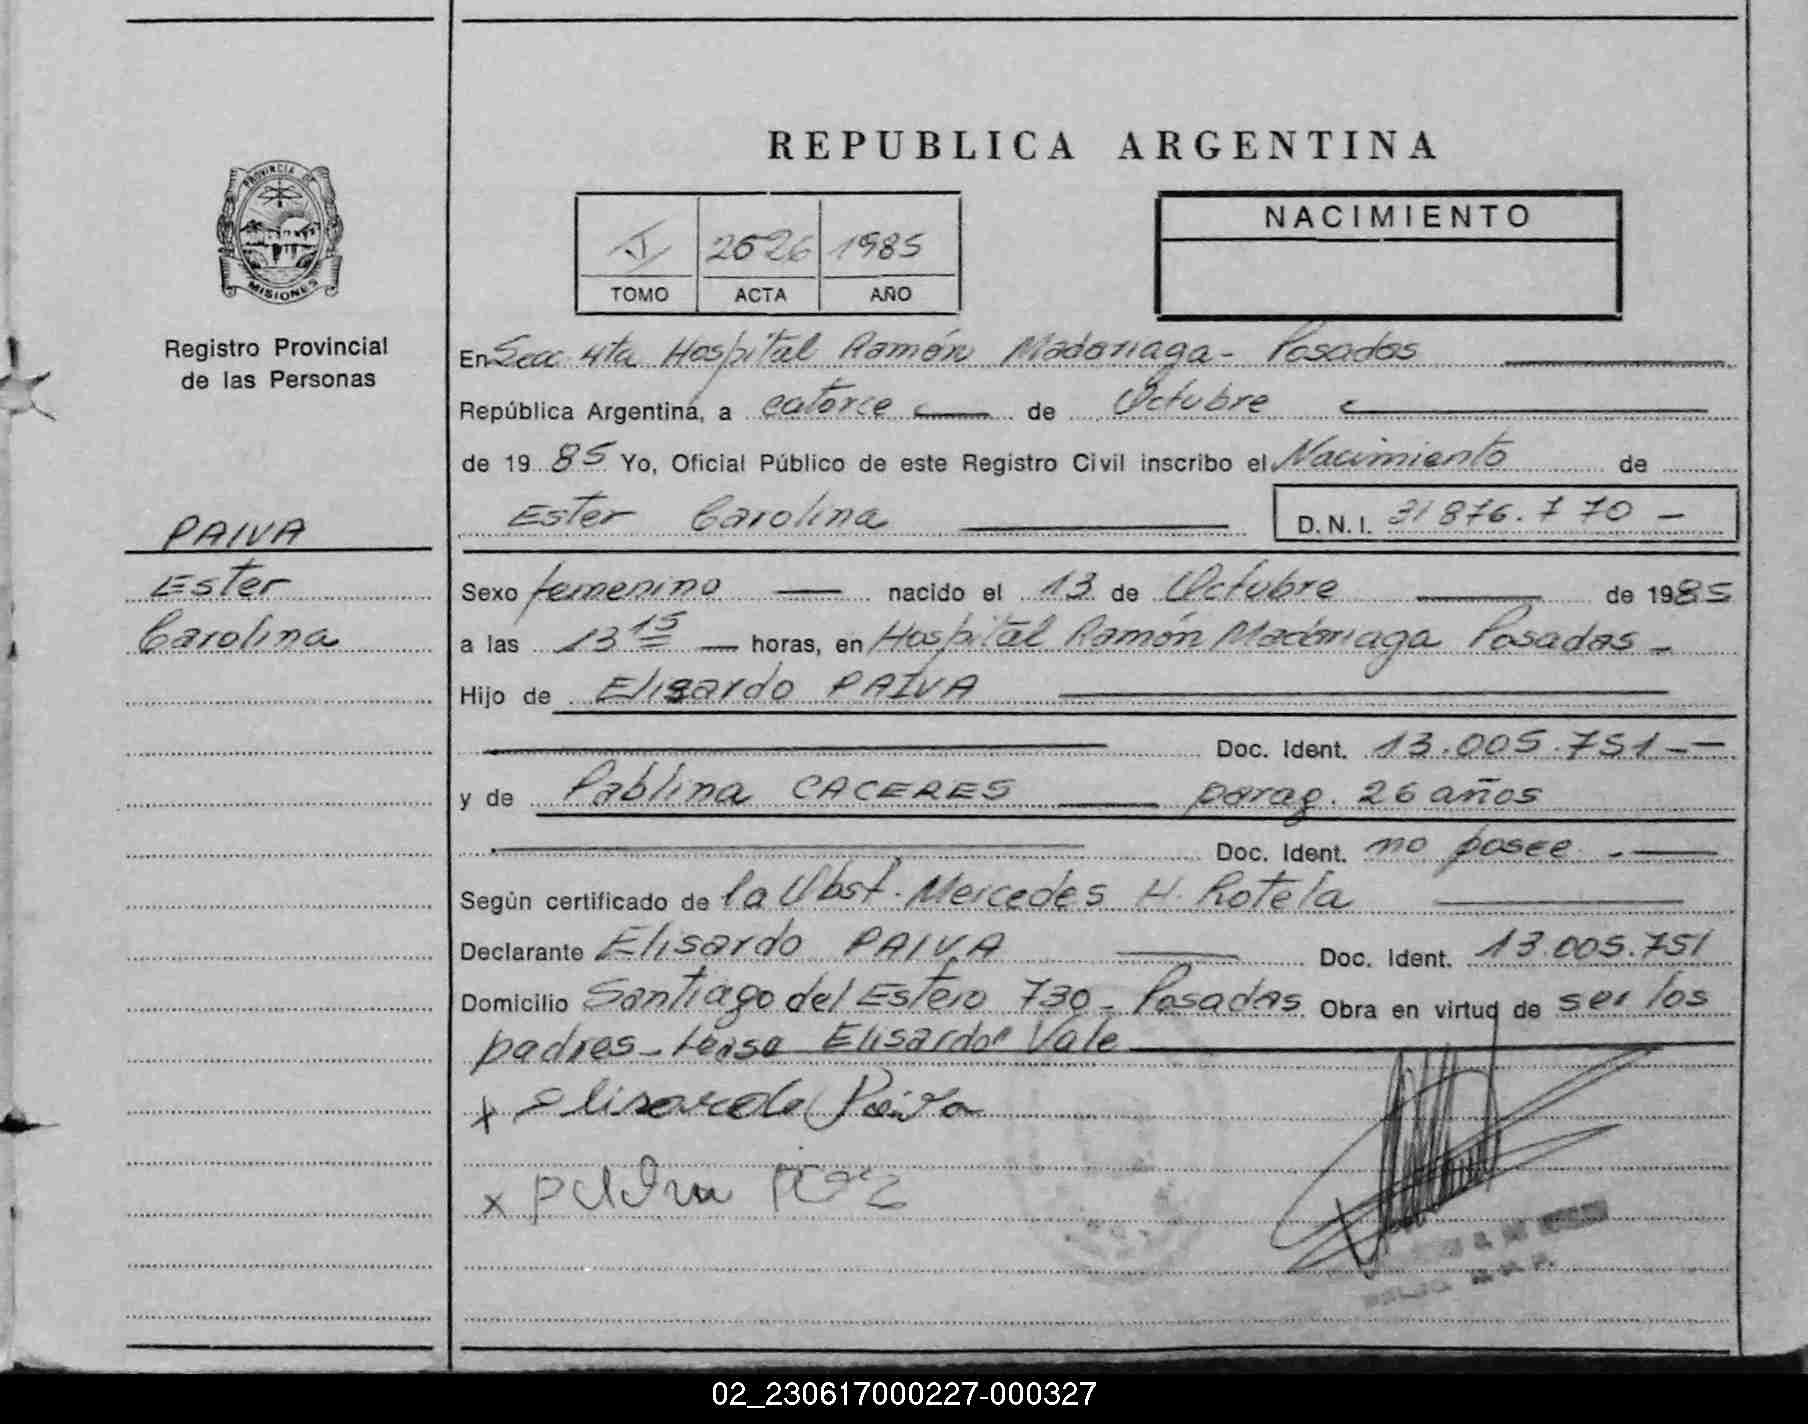 REPUBLICA ARGENTINA
PROVINCIA DE
MISIONES
Registro Provincial
de las Personas
2526 1985
TOMO ACTA AÑO
NACIMIENTO
En Secc 4ta Hospital Ramón Madariaga - Posadas
República Argentina, a catorce de Octubre
de 19 85 Yo, Oficial Público de este Registro Civil inscribo el Nacimiento de
Ester Carolina D.N.I. 31 876.770 -
PAIVA
Ester
Carolina
Sexo femenino nacido el 13 de Octubre de 1985
a las 13 15 horas, en Hospital Ramón Madariaga Posadas -
Hijo de Elisardo PAIVA
Doc. Ident. 13.005.751 - -
y de Pablina CACERES parag. 26 años
Doc. Ident. no posee . -
Según certificado de la Obst. Mercedes H. Rotela
Declarante Elisardo PAIVA Doc. Ident. 13.005.751
Domicilio Santiago del Estero 730 - Posadas Obra en virtud de ser los
padres - Lease Elisardo" Vale
x Elisardo Paiva
x
02_230617000227-000327